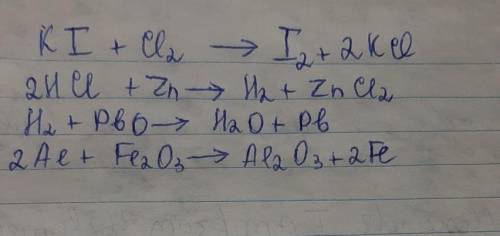 KI + Cl₂ → I₂ + 2KCl
2HCl + Zn → H₂ + ZnCl₂
H₂ + PbO → H₂O + Pb
2Al + Fe₂O₃ → Al₂O₃ + 2Fe